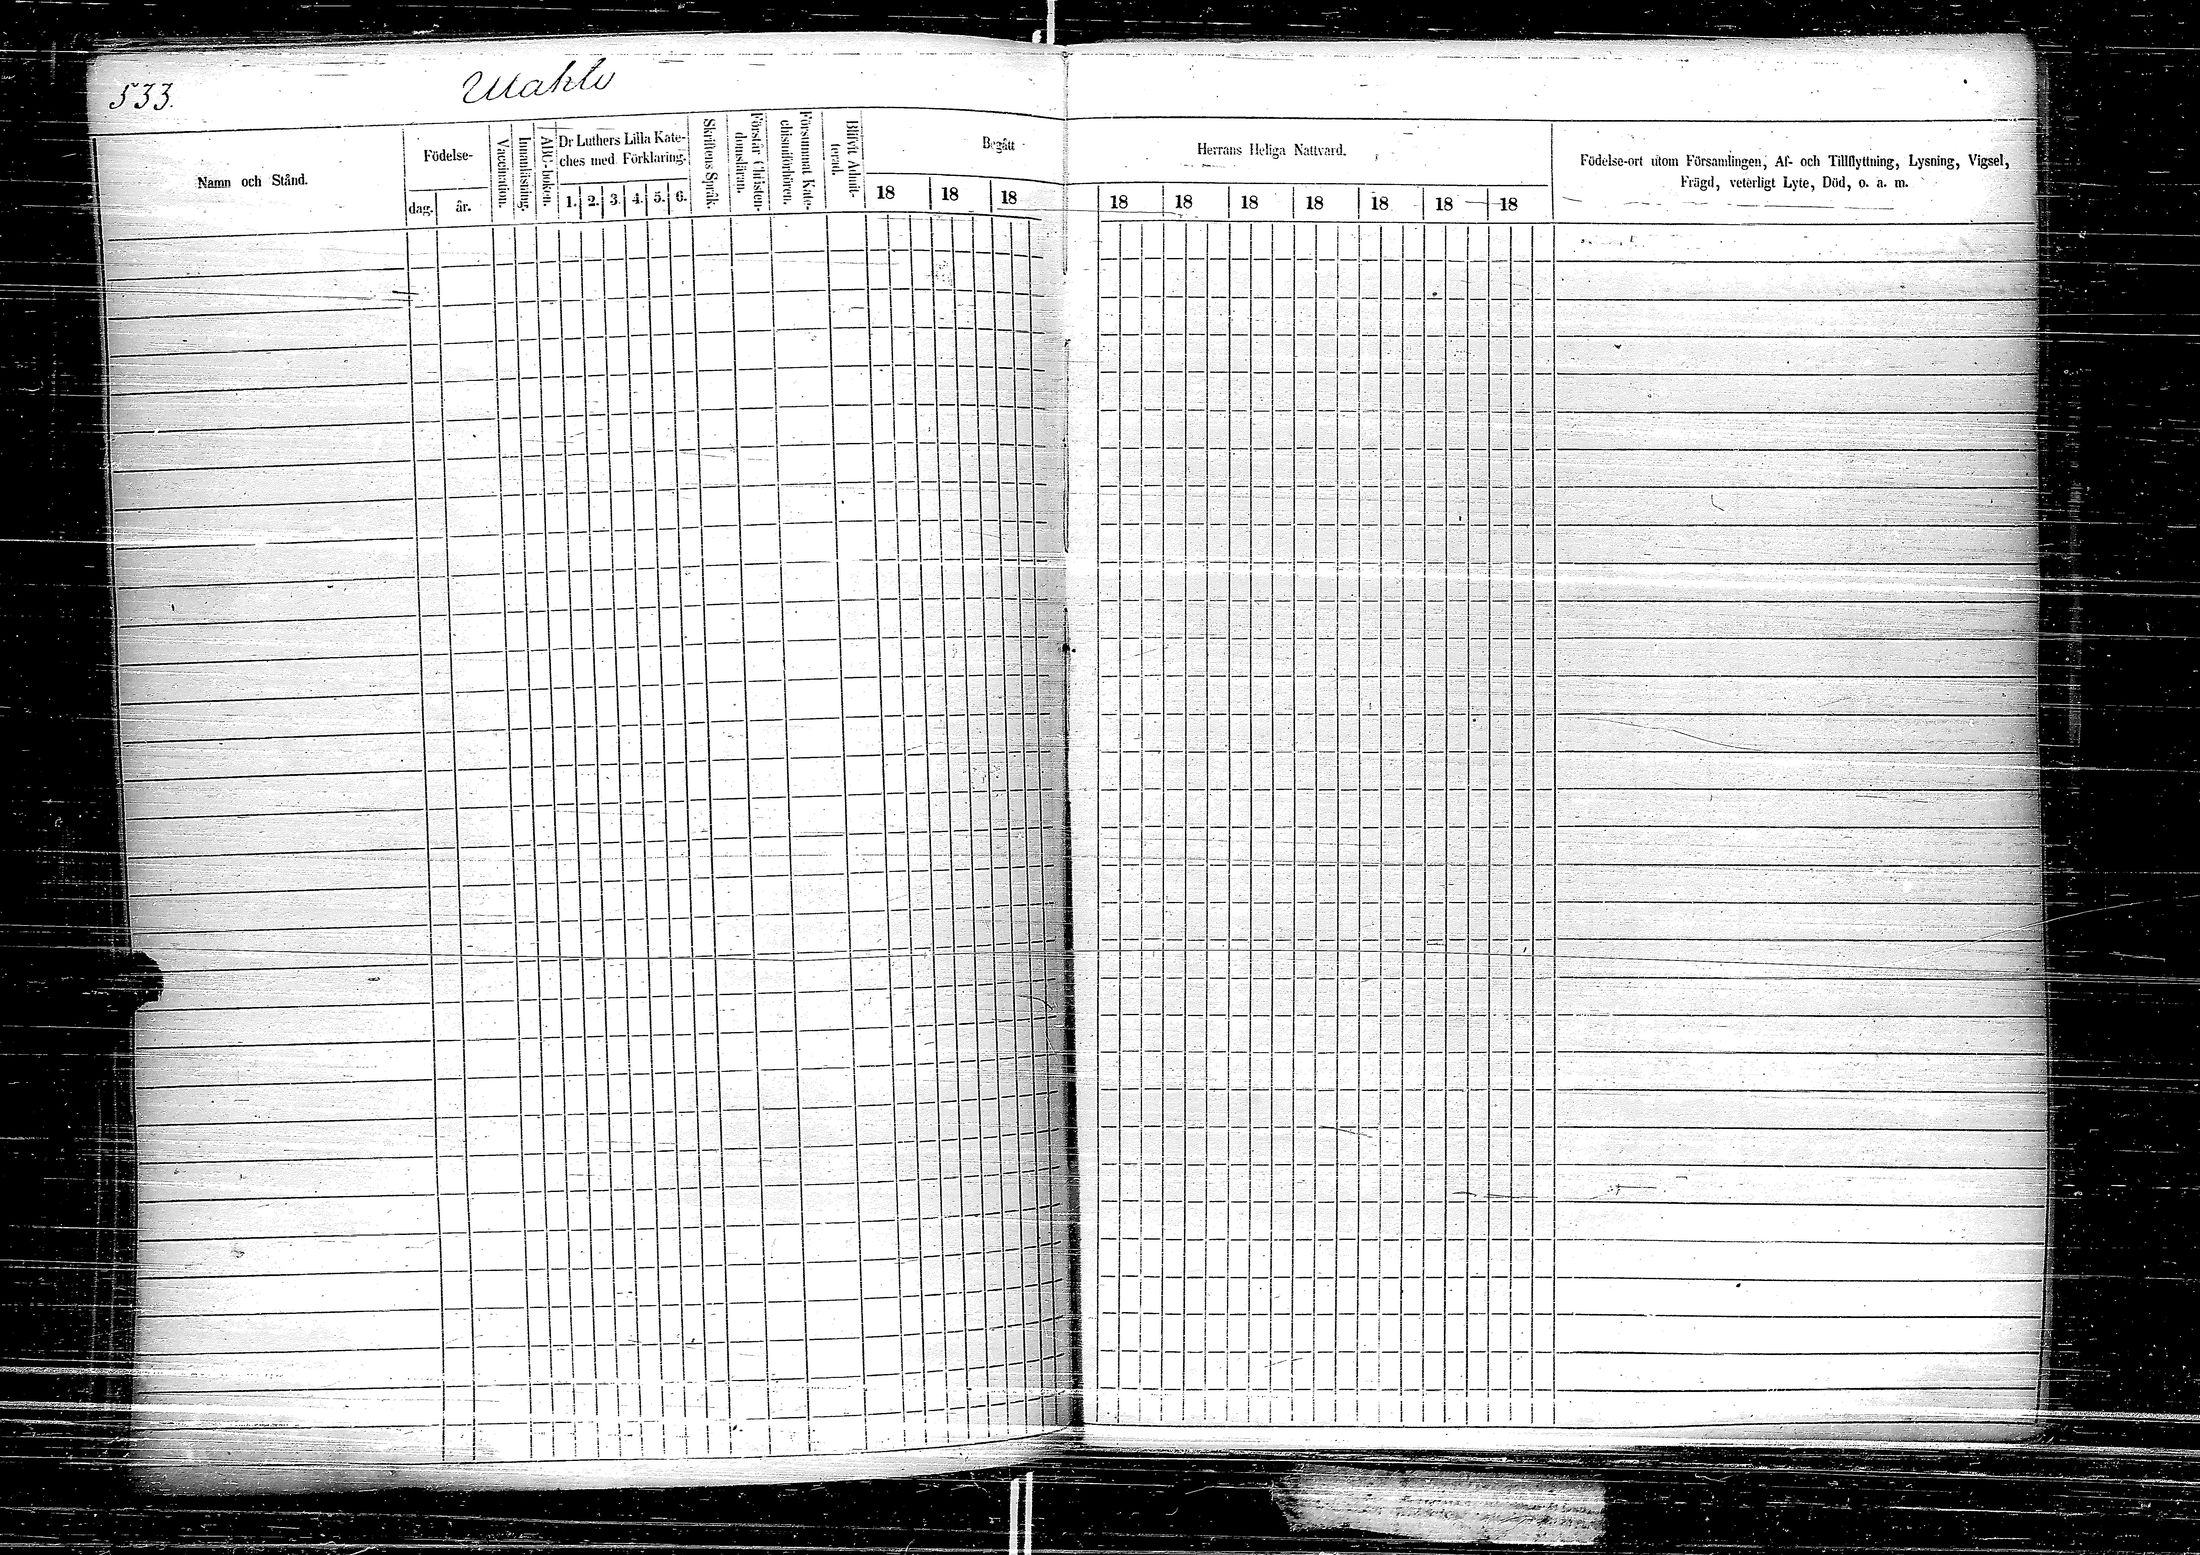 533.
Utahlo
Namn och Stånd.
Födelse-
dag.
år.
Vaccination.
Innanläsning.
ABC-boken.
Dr Luthers Lilla Kate-
ches med Förklaring.
1. 2. 3. 4. 5. 6.
Skriftens Språk.
Förstår Christen-
domsläran.
Försummat Kate-
chismiförhören.
Blifvit Admit-
terad.
Begått
18 18 18
Herrans Heliga Nattvard.
18 18 18 18 18 18 18
Födelse-ort utom Församlingen, Af- och Tillflyttning, Lysning, Vigsel,
Frägd, veterligt Lyte, Död, o. a. m.